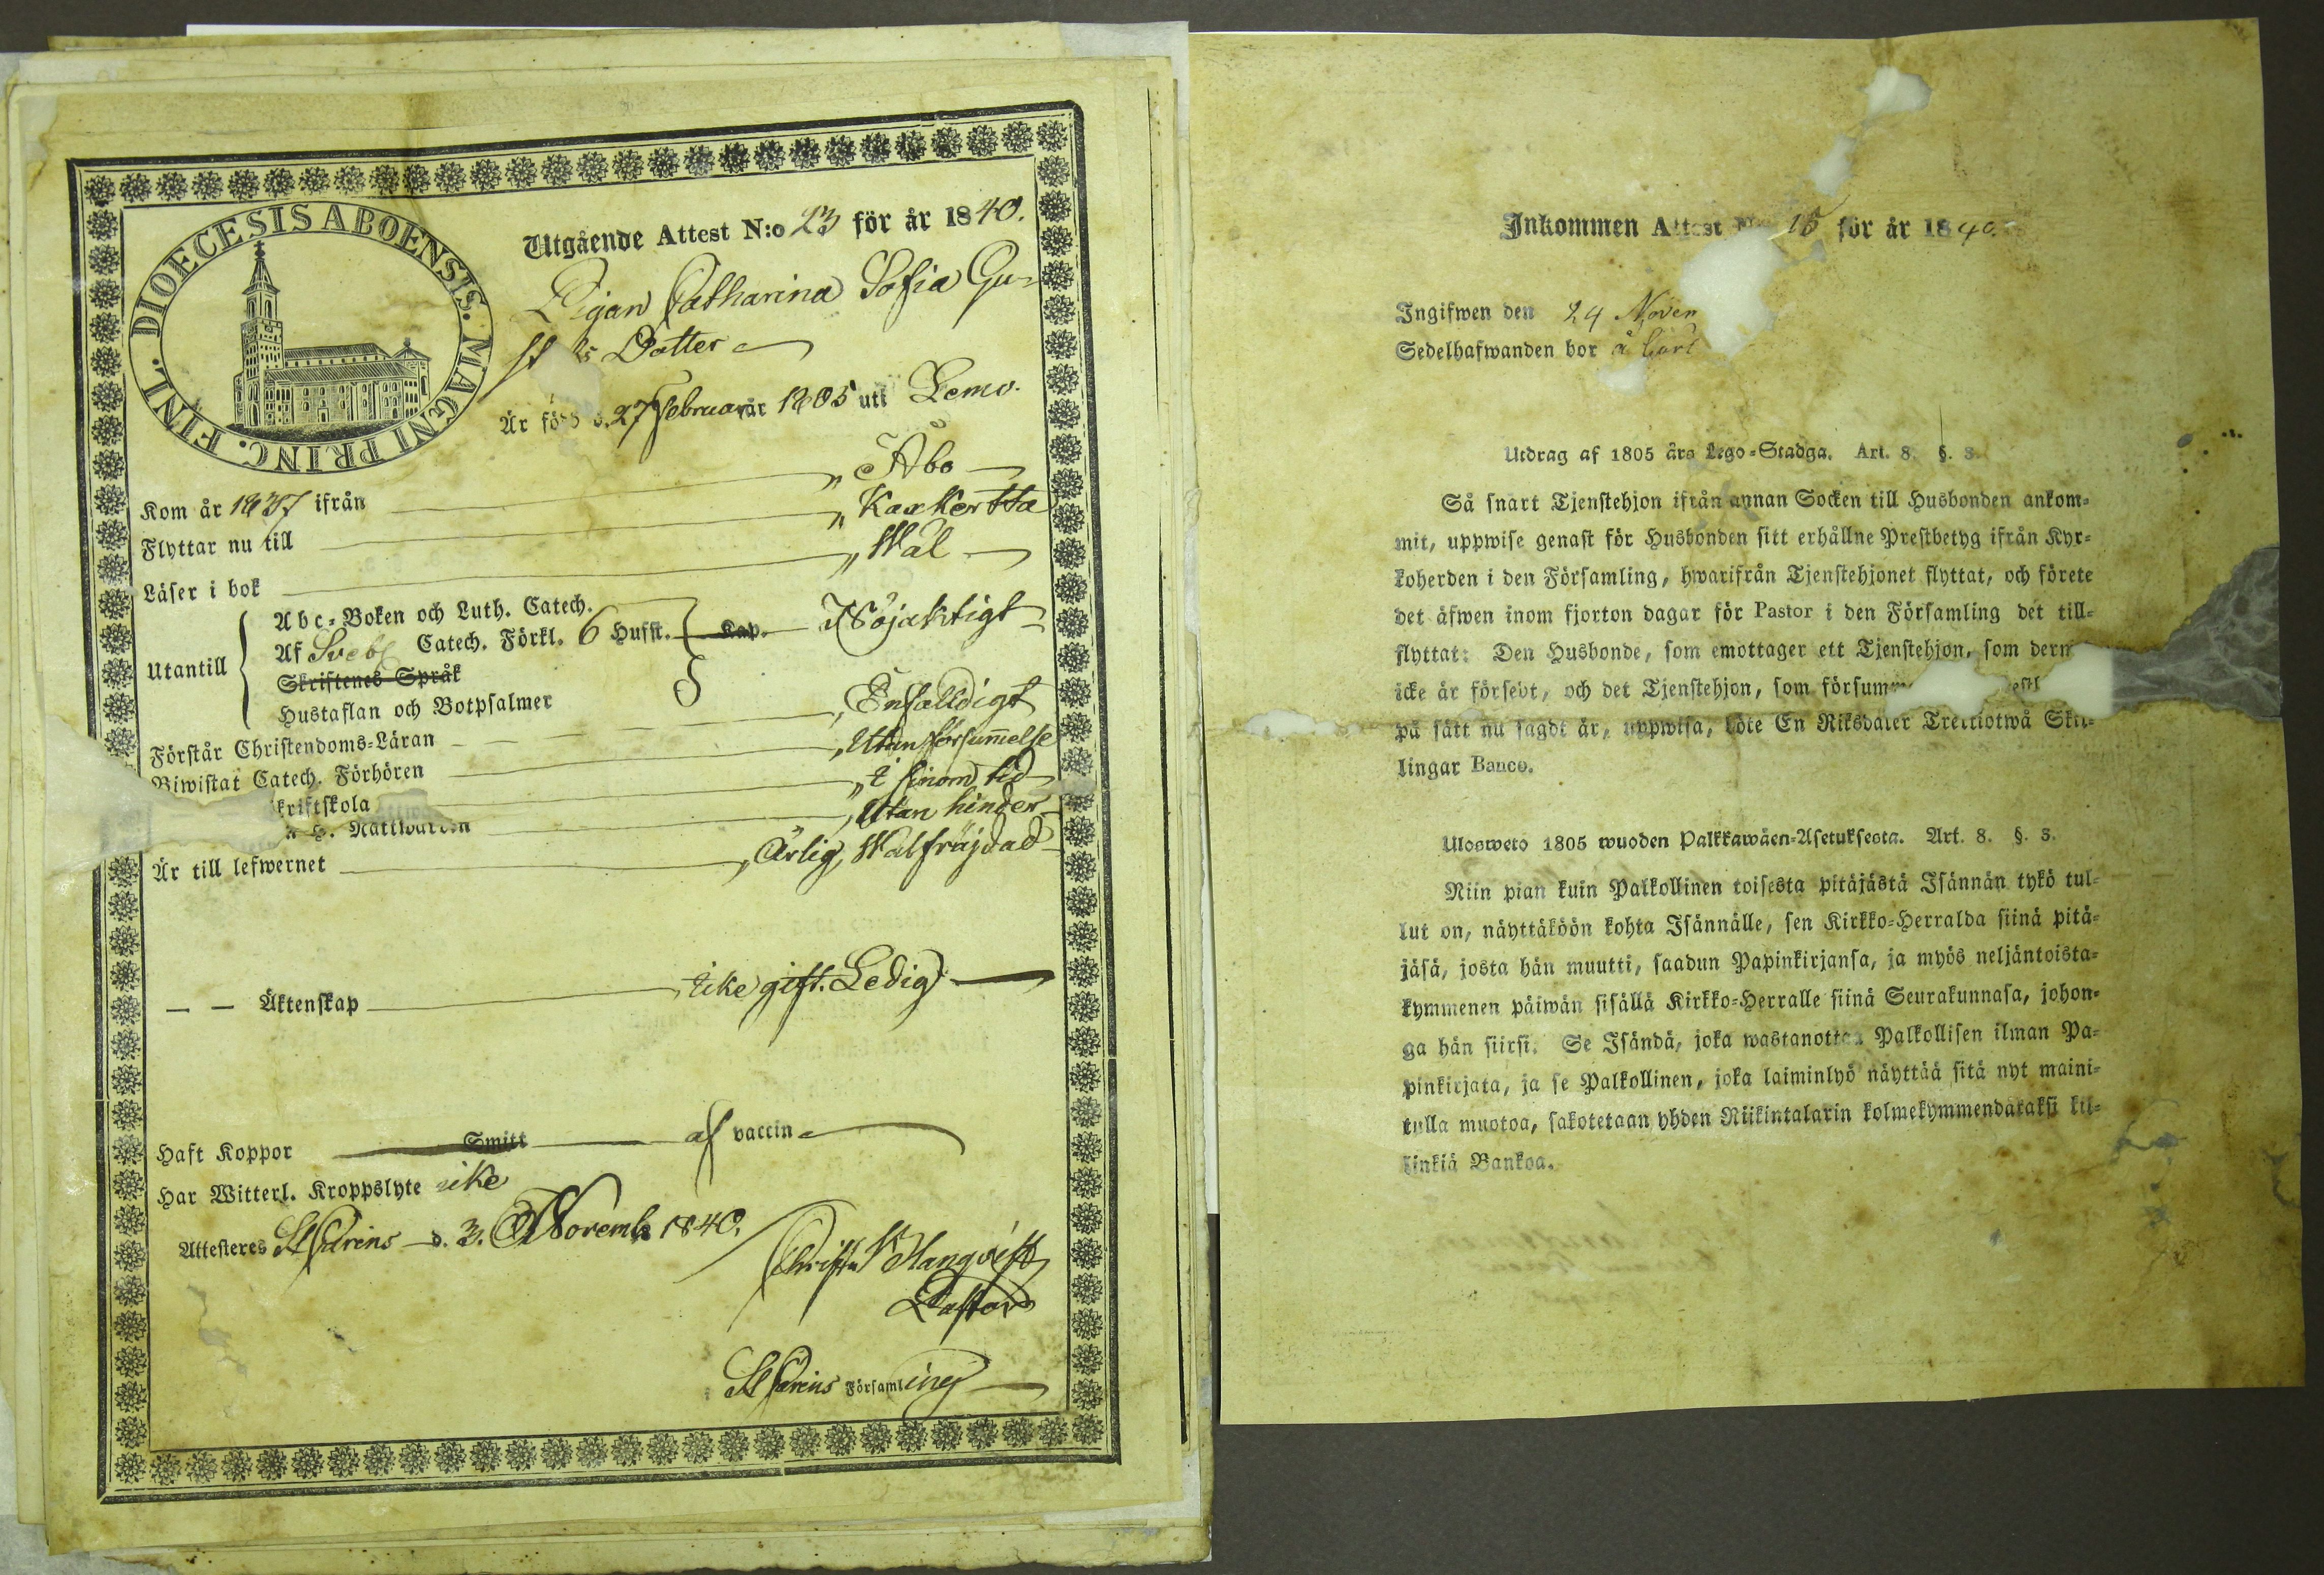 DIOECESIS ABOENSIS. MAGNI PRINC. FINL.
Utgående Attest N:o 23 för år 1840.
Pigan Catharina Sofia Gu-
Dotter
Är född d. 27 Februari år 1805 uti Lemo.
Kom år 1837 ifrån „ Åbo
Flyttar nu till „ Kaxkertta
Läser i bok „ Wäl
Utantill
Abc-Boken och Luth. Catech.
Af Sveb. Catech. Förkl. 6 Hufst. Kap. Nöjaktigt
Skriftenes Språk
Hustaflan och Botpsalmer
Förstår Christendoms-Läran „ Enfalldigt
Biwistat Catech. Förhören „ Utan försummelse
kriftskola „ i sinom tid
H. Nattwarden „ Utan hinder
Är till lefwernet „ Ärlig, Wälfräjdad
— — Äktenskap „ icke gift. Ledig.
Haft Koppor Smitt af vaccin
Har Witterl. Kroppslyte icke
Attesteres St Karins d. 3. Novemb 1840.
Pastor
St Karins Församling
Inkommen Attest N:o 15 för år 1840.
Ingifwen den 24 Novem
Sedelhafwanden bor å
Utdrag af 1805 års Lego-Stadga. Art. 8. §. 3.
Så snart Tjenstehjon ifrån annan Socken till Husbonden ankom-
mit, uppwise genast för Husbonden sitt erhållne Prestbetyg ifrån Kyr-
koherden i den Församling, hwarifrån Tjenstehjonet flyttat, och förete
det äfwen inom fjorton dagar för Pastor i den Församling det till-
flyttat: Den Husbonde, som emottager ett Tjenstehjon, som derm
icke är försedt, och det Tjenstehjon, som försumm
på sätt nu sagdt är, uppwisa, böte En Riksdaler Trettiotwå Skil-
lingar Banco.
Ulosweto 1805 wuoden Palkkawäen-Asetuksesta. Art. 8. §. 3.
Niin pian kuin Palkollinen toisesta pitäjästä Isännän tykö tul-
lut on, näyttäköön kohta Isännälle, sen Kirkko-Herralda siinä pitä-
jäsä, josta hän muutti, saadun Papinkirjansa, ja myös neljäntoista-
kymmenen päiwän sisällä Kirkko-Herralle siinä Seurakunnasa, johon-
ga hän siirsi. Se Isändä, joka wastanottaa Palkollisen ilman Pa-
pinkirjata, ja se Palkollinen, joka laiminlyö näyttää sitä nyt maini-
tulla muotoa, sakotetaan yhden Riikintalarin kolmekymmendäkaksi kil-
linkiä Bankoa.